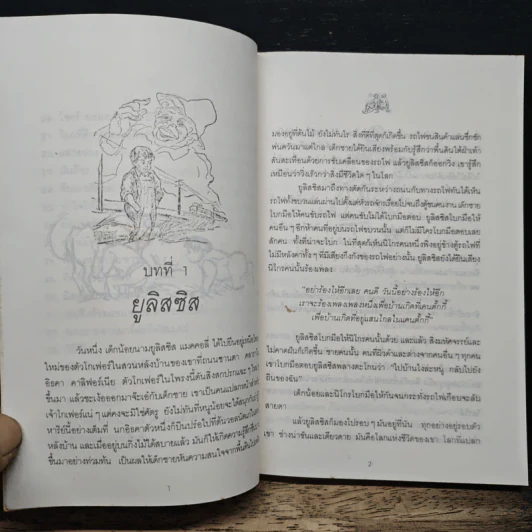 บทที่ 1
ยูลิสซิส
วันหนึ่ง เด็กน้อยนามยูลิสซิส แมคคอลี ได้ไปยืนอยู่เหนือโพรง
ใหม่ของตัวโกเฟอร์ในสวนหลังบ้านของเขาที่ถนนซานตา คลารา
อิธิคา คาลิฟอร์เนีย ตัวโกเฟอร์ในโพรงนี้ดันสิ่งสกปรกสด ๆ
ขึ้นมา แล้วชะเง้อออกมาจ้องเด็กชาย เขาเป็นคนแปลกหน้า
เจ้าโกเฟอร์แน่ ๆ แต่คงจะมิใช่ศัตรู ยังไม่ทันที่หนูน้อยจะได้สนุกกับ
หาริย์นี้อย่างเต็มที่ นกอิธคาตัวหนึ่งก็บินปร๋อไปที่ต้นวอลนัต
หลังบ้าน และเมื่ออยู่บนกิ่งไม้ได้สบายแล้ว มันก็ให้เกิดความรู้สึก
ขึ้นมาอย่างท่วมท้น เป็นผลให้เด็กชายหันความสนใจจากพื้นดิน
1
มองอยู่ที่ต้นไม้ ยังไม่ทันไร สิ่งที่ดีที่สุดก็เกิดขึ้น รถไฟขนสินค้าแล่นฉึกฉัก
พ่นควันมาแต่ไกล เด็กชายได้ยินเสียงพร้อมกับรู้สึกว่าพื้นดินใต้ฝ่าเท้า
สั่นสะเทือนด้วยการขับเคลื่อนของรถไฟ แล้วยูลิสซิสก็ออกวิ่ง เขารู้สึก
เหมือนว่าวิ่งเร็วกว่าสิ่งมีชีวิตใด ๆ ในโลก
ยูลิสซิสมาถึงทางตัดกันระหว่างถนนกับทางรถไฟทันได้เห็น
รถไฟทั้งขบวนแล่นผ่านไปตั้งแต่หัวรถจักรเรื่อยไปจนถึงตู้ขนคนงาน เด็กชาย
โบกมือให้คนขับรถไฟ แต่คนขับไม่ได้โบกมือตอบ ยูลิสซิสโบกมือให้
คนอื่น ๆ อีกห้าคนที่อยู่บนรถไฟขบวนนั้น แต่ก็ไม่มีใครโบกมือตอบเลย
สักคน ทั้งที่น่าจะโบก ในที่สุดก็เห็นนิโกรคนหนึ่งพิงอยู่ข้างตู้รถไฟที่
ไม่มีหลังคาตั้ง ๆ ที่มีเสียงกึงกังของรถไฟอย่างนั้น ยูลิสซิสยังได้ยินเสียง
นิโกรคนนั้นร้องเพลง
"อย่าร้องไห้อีกเลย คนดี วันนี้อย่าร้องไห้อีก
เราจะร้องเพลงเพลงหนึ่งเพื่อบ้านเกิดที่เคนตั๊กกี้
เพื่อบ้านเกิดที่อยู่แสนไกลในเคนตั๊กกี้"
ยูลิสซิสโบกมือให้นิโกรคนนั้นด้วย และแล้ว สิ่งมหัศจรรย์และ
ไม่คาดฝันก็เกิดขึ้น ชายคนนั้น คนที่ผิวดำและต่างจากคนอื่น ๆ ทุกคน
เขาโบกมือตอบยูลิสซิสพลางตะโกนว่า "ไปบ้านโว้งล่ะหนู กลับไปยัง
ถิ่นของฉัน"
เด็กน้อยและนิโกรโบกมือให้กันจนกระทั่งรถไฟเกือบจะลับ
สายตา
แล้วยูลิสซิสก็มองไปรอบ ๆ มันอยู่ที่นั่น ทุก ๆ อย่างอยู่รอบตัว
เขา ช่างน่าขันและเดียวดาย มันคือโลกแห่งชีวิตของเขา โลกที่แปลก
2